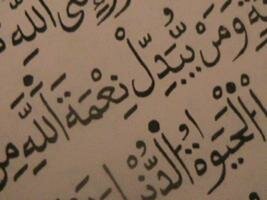 إلى الله
ية ومن يبدل نعمة الله من
الحيوة الدنيا